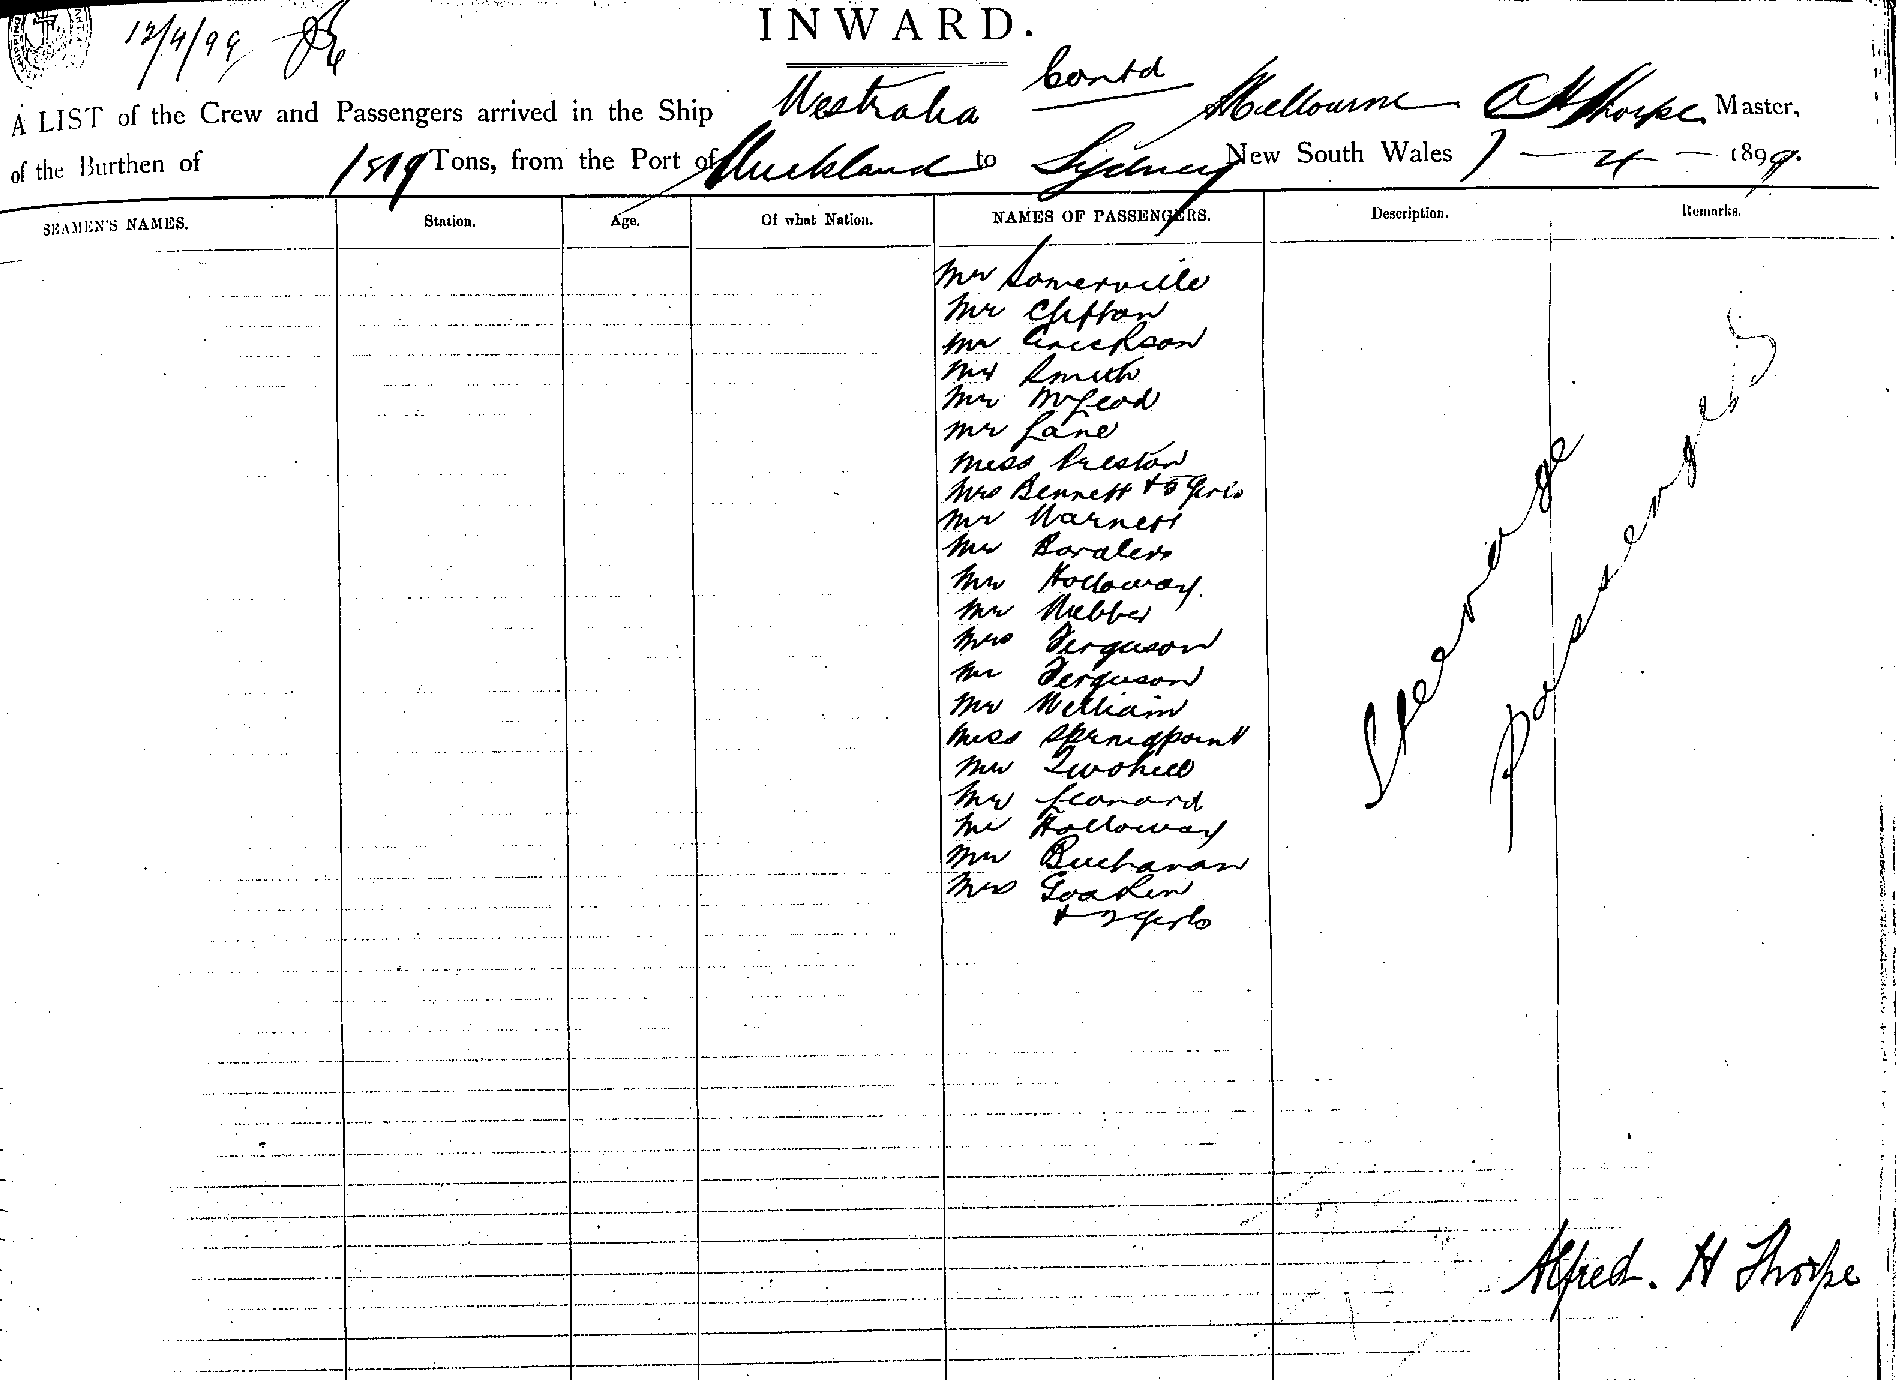 12/4/99
INWARD.
Contd
A LIST of the Crew and Passengers arrived in the Ship Westralia Melbourne A H Thorpe Master,
of the Burthen of 1819 Tons, from the Port of Auckland to Sydney New South Wales 7 - 4 - 1899.
SEAMEN'S NAMES. Station. Age. Of what Nation. NAMES OF PASSENGERS. Description. Remarks.
Mr Somerville
Mr Clifton
Mr Erickson
Mr Smith
Mr McLeod
Mr Lane
Miss Preston
Mrs Bennett + Girls
Mr Warnett
Mr
Mr Holloway.
Mr Webber
Mrs Ferguson
Mr Ferguson
Mr William
Miss Springpoint
Mr Twohill
Mr Leonard
Mr Holloway
Mr Buchanan
Mrs
+ 2 girls
Steerage
Passengers
Alfred. H Thorpe